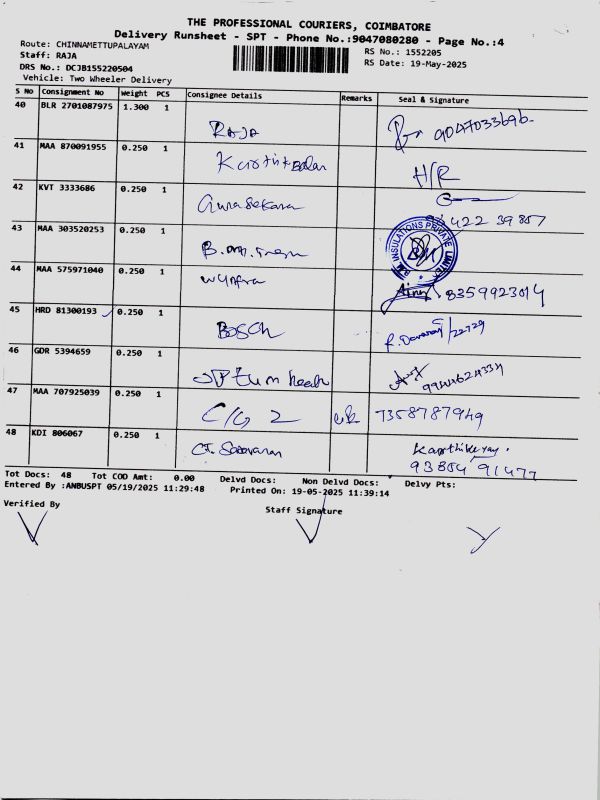 THE PROFESSIONAL COURIERS, COIMBATORE
Delivery Runsheet - SPT - Phone No.:9047080280 - Page No.:4
Route: CHINNAMETTUPALAYAM
RS No.: 1552205
Staff: RAJA
RS Date: 19-May-2025
DRS No.: DCJB155220504
Vehicle: Two Wheeler Delivery
S No Consignment No Weight PCS Consignee Details Remarks Seal & Signature
40 BLR 2701087975 1.300 1 RAJA
41 MAA 870091955 0.250 1 H/R
42 KVT 3333686 0.250 1
43 MAA 303520253 0.250 1 INSULATIONS PRIVATE LIMITED
44 MAA 575971040 0.250 1 8359923014
45 HRD 81300193 0.250 1 BOSCH
46 GDR 5394659 0.250 1
47 MAA 707925039 0.250 1 7358787949
48 KDI 806067 0.250 1 Karthikeyan.
93854 91477
Tot Docs: 48 Tot COD Amt: 0.00 Delvd Docs: Non Delvd Docs: Delvy Pts:
Entered By :ANBUSPT 05/19/2025 11:29:48 Printed On: 19-05-2025 11:39:14
Verified By Staff Signature